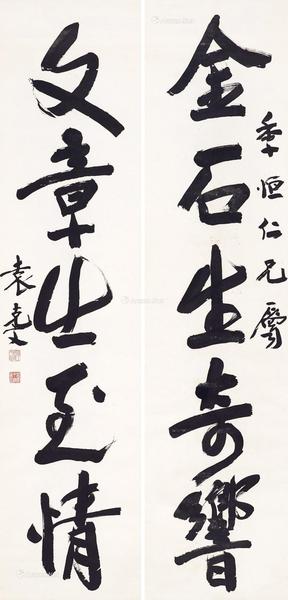 金石生奇響
季恒仁兄屬
文章出至情
袁克文